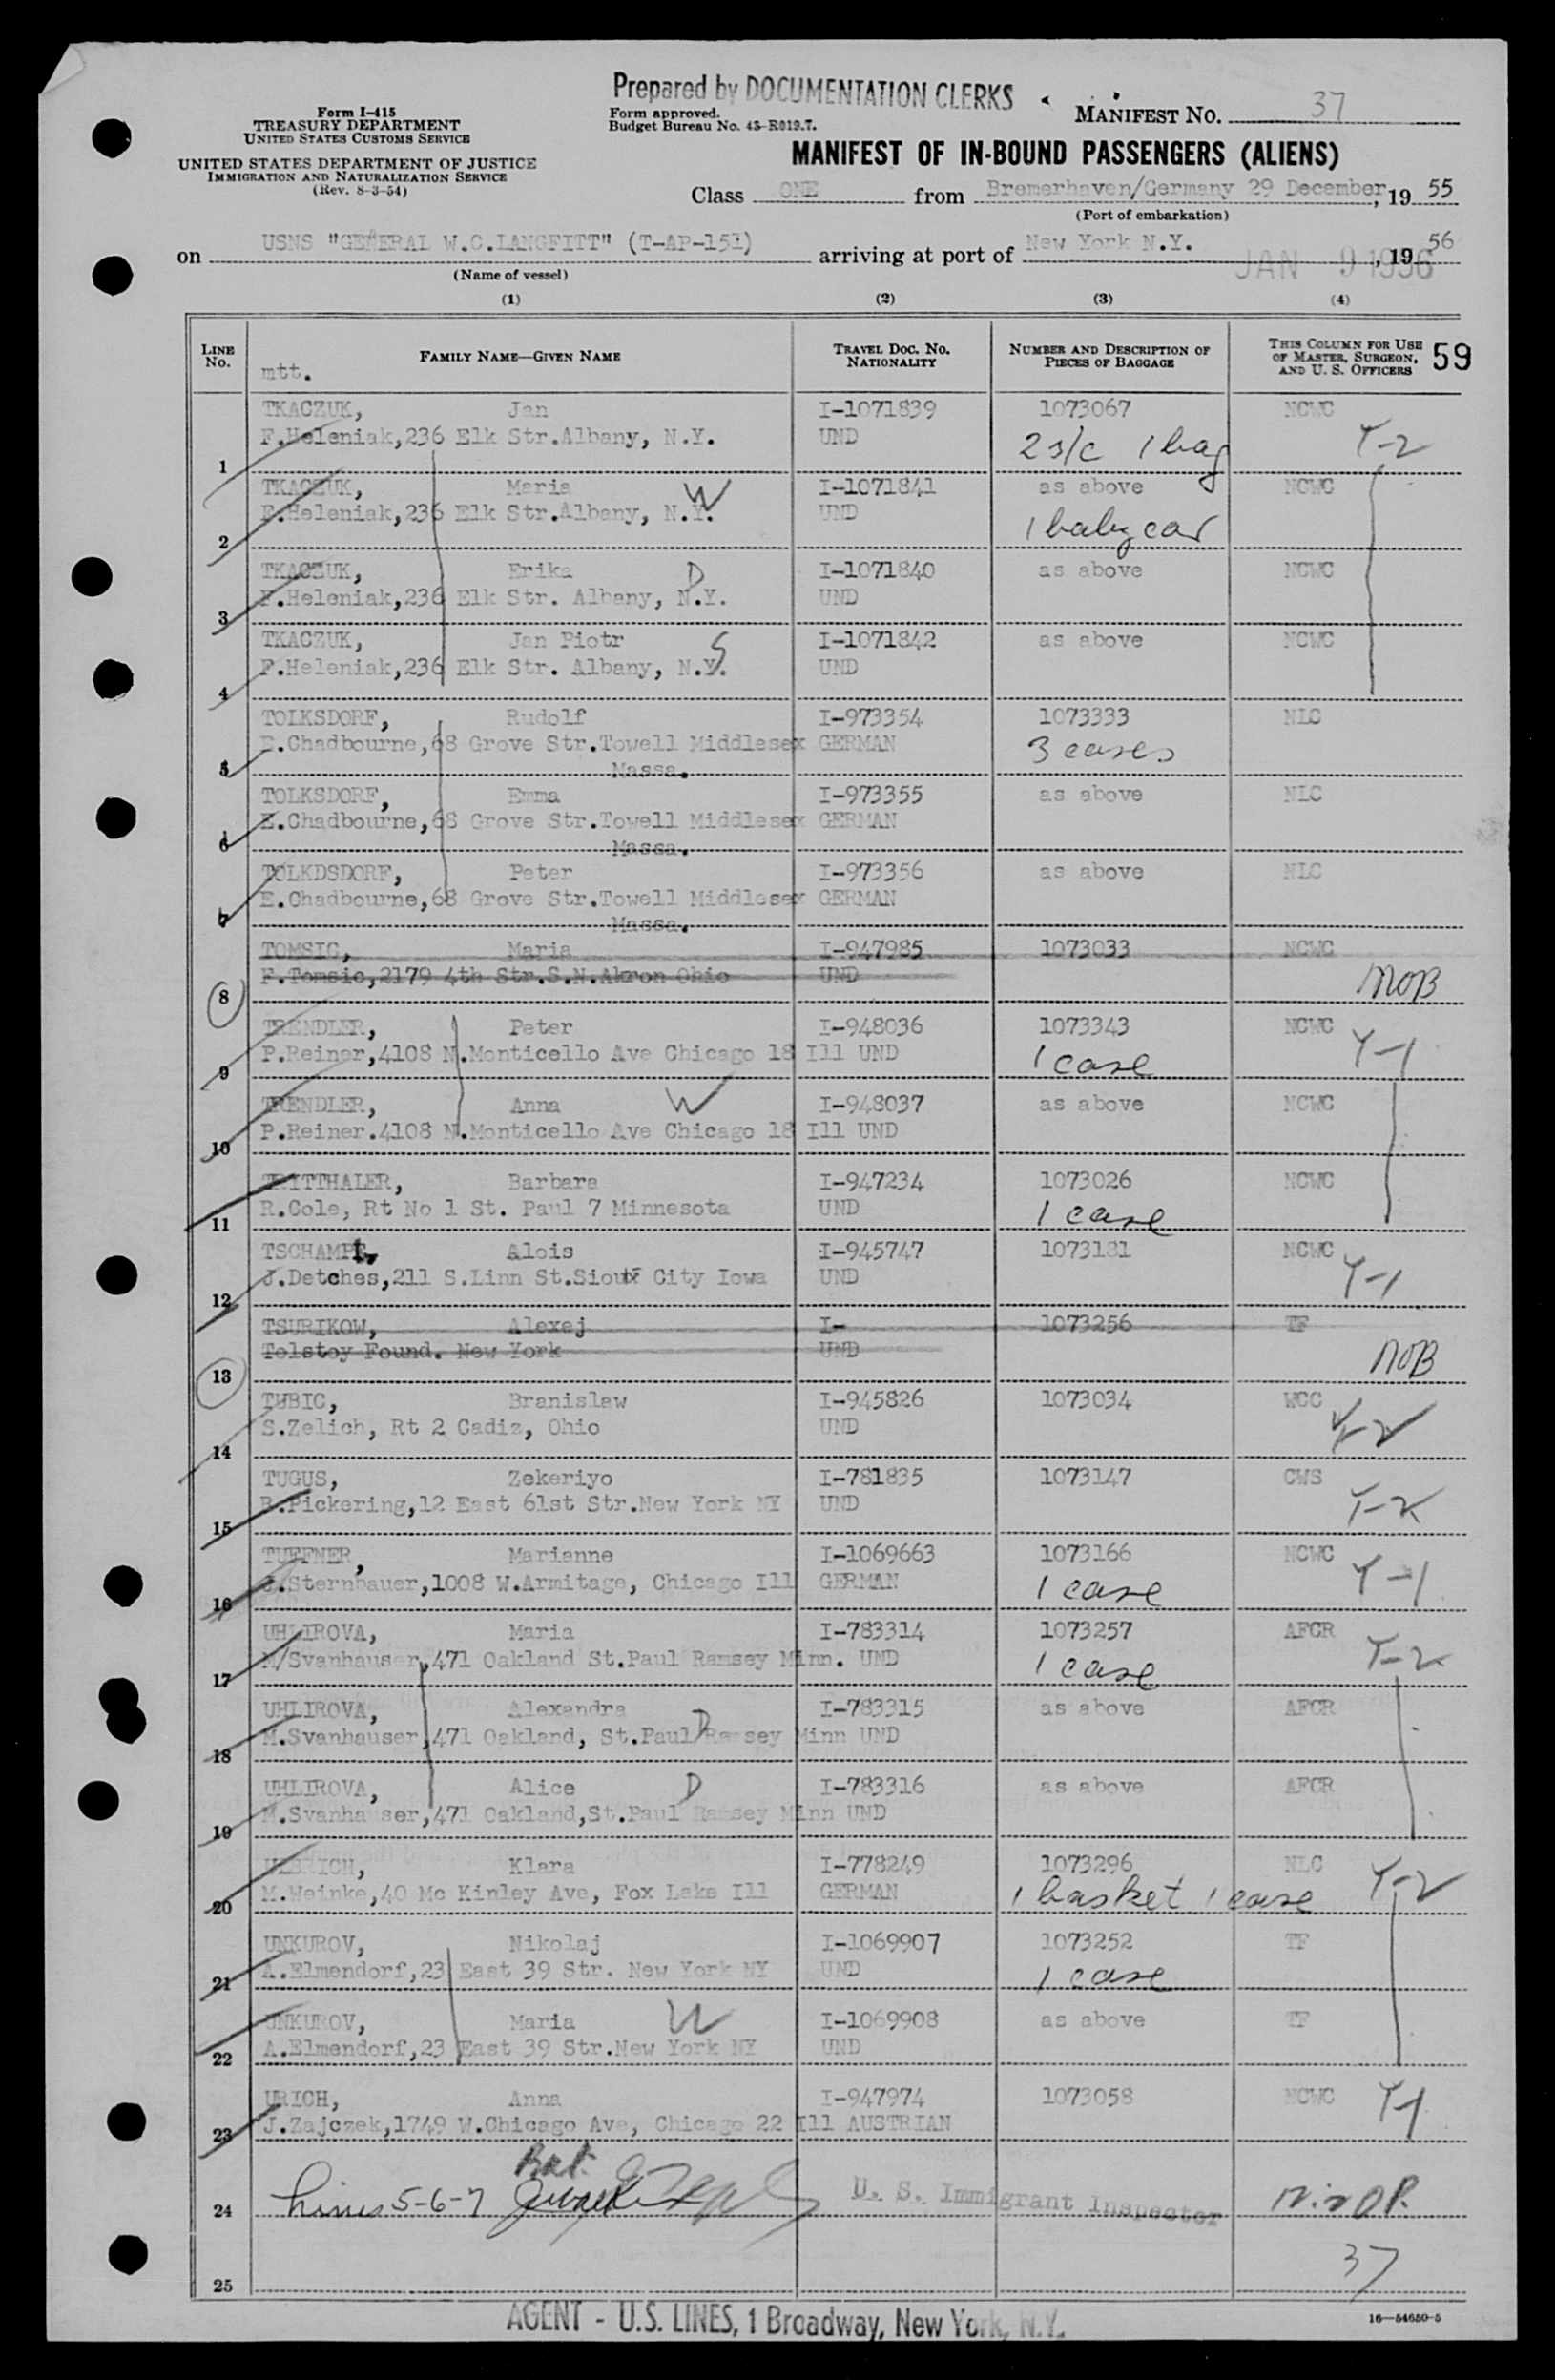 Prepared by DOCUMENTATION CLERKS
Form I-415
TREASURY DEPARTMENT
UNITED STATES CUSTOMS SERVICE
UNITED STATES DEPARTMENT OF JUSTICE
IMMIGRATION AND NATURALIZATION SERVICE
(Rev. 8-3-54)
Form approved.
Budget Bureau No. 43-R019.7.
MANIFEST NO. 37
MANIFEST OF IN-BOUND PASSENGERS (ALIENS)
Class ONE from Bremerhaven/Germany 29 December, 19 55
(Port of embarkation)
on USNS "GENERAL W.C.LANGFITT" (T-AP-151) arriving at port of New York N.Y. , 19 56
JAN 9 1956
(Name of vessel)
(1) (2) (3) (4)
LINE NO. FAMILY NAME—GIVEN NAME TRAVEL DOC. NO. NATIONALITY NUMBER AND DESCRIPTION OF PIECES OF BAGGAGE THIS COLUMN FOR USE OF MASTER, SURGEON, AND U. S. OFFICERS 59
mtt.
TKACZUK, Jan I-1071839 1073067 NCWC
F.Heleniak,236 Elk Str.Albany, N.Y. UND 2 s/c 1 bag Y-2
1
TKACZUK, Maria W I-1071841 as above NCWC
F.Heleniak,236 Elk Str.Albany, N.Y. UND 1 baby car
2
TKACZUK, Erika D I-1071840 as above NCWC
F.Heleniak,236 Elk Str. Albany, N.Y. UND
3
TKACZUK, Jan Piotr S I-1071842 as above NCWC
F.Heleniak,236 Elk Str. Albany, N.Y. UND
4
TOLKSDORF, Rudolf I-973354 1073333 NLC
E.Chadbourne,68 Grove Str.Towell Middlesex GERMAN 3 cases
5 Massa.
TOLKSDORF, Emma I-973355 as above NLC
E.Chadbourne,68 Grove Str.Towell Middlesex GERMAN
6 Massa.
TOLKDSDORF, Peter I-973356 as above NLC
E.Chadbourne,68 Grove Str.Towell Middlesex GERMAN
7 Massa.
TOMSIC, Maria I-947985 1073033 NCWC
F.Tomsic,2179 4th Str.S.N.Akron Ohio UND NOB
8
TRENDLER, Peter I-948036 1073343 NCWC
P.Reiner,4108 N.Monticello Ave Chicago 18 Ill UND 1 case Y-1
9
TRENDLER, Anna W I-948037 as above NCWC
P.Reiner.4108 N.Monticello Ave Chicago 18 Ill UND
10
TRITTHALER, Barbara I-947234 1073026 NCWC
R.Cole, Rt No 1 St. Paul 7 Minnesota UND 1 case
11
TSCHAMPE, Alois I-945747 1073181 NCWC
J.Detches,211 S.Linn St.Sioux City Iowa UND Y-1
12
TSURIKOW, Alexej I- 1073256 TF
Tolstoy Found. New York UND NOB
13
TUBIC, Branislaw I-945826 1073034 WCC
S.Zelich, Rt 2 Cadiz, Ohio UND Y-2
14
TUGUS, Zekeriyo I-781835 1073147 CWS
B.Pickering,12 East 61st Str.New York NY UND Y-2
15
TUFFNER, Marianne I-1069663 1073166 NCWC
Sternbauer,1008 W.Armitage, Chicago Ill GERMAN 1 case Y-1
16
UHLIROVA, Maria I-783314 1073257 AFCR
M/Svanhauser,471 Oakland St.Paul Ramsey Minn. UND 1 case Y-2
17
UHLIROVA, Alexandra D I-783315 as above AFCR
M.Svanhauser,471 Oakland, St.Paul Ramsey Minn UND
18
UHLIROVA, Alice D I-783316 as above AFCR
M.Svanhauser,471 Oakland,St.Paul Ramsey Minn UND
19
ULBRICH, Klara I-778249 1073296 NLC
M.Weinke,40 Mc Kinley Ave, Fox Lake Ill GERMAN 1 basket 1 case Y-2
20
UNKUROV, Nikolaj I-1069907 1073252 TF
A.Elmendorf,23 East 39 Str. New York NY UND 1 case
21
UNKUROV, Maria W I-1069908 as above TF
A.Elmendorf,23 East 39 Str.New York NY UND
22
URICH, Anna I-947974 1073058 NCWC Y-1
J.Zajczek,1749 W.Chicago Ave, Chicago 22 Ill AUSTRIAN
23
24 Lines 5-6-7 U. S. Immigrant Inspector
37
25
AGENT - U.S. LINES, 1 Broadway, New York, N.Y.
16—54650-5